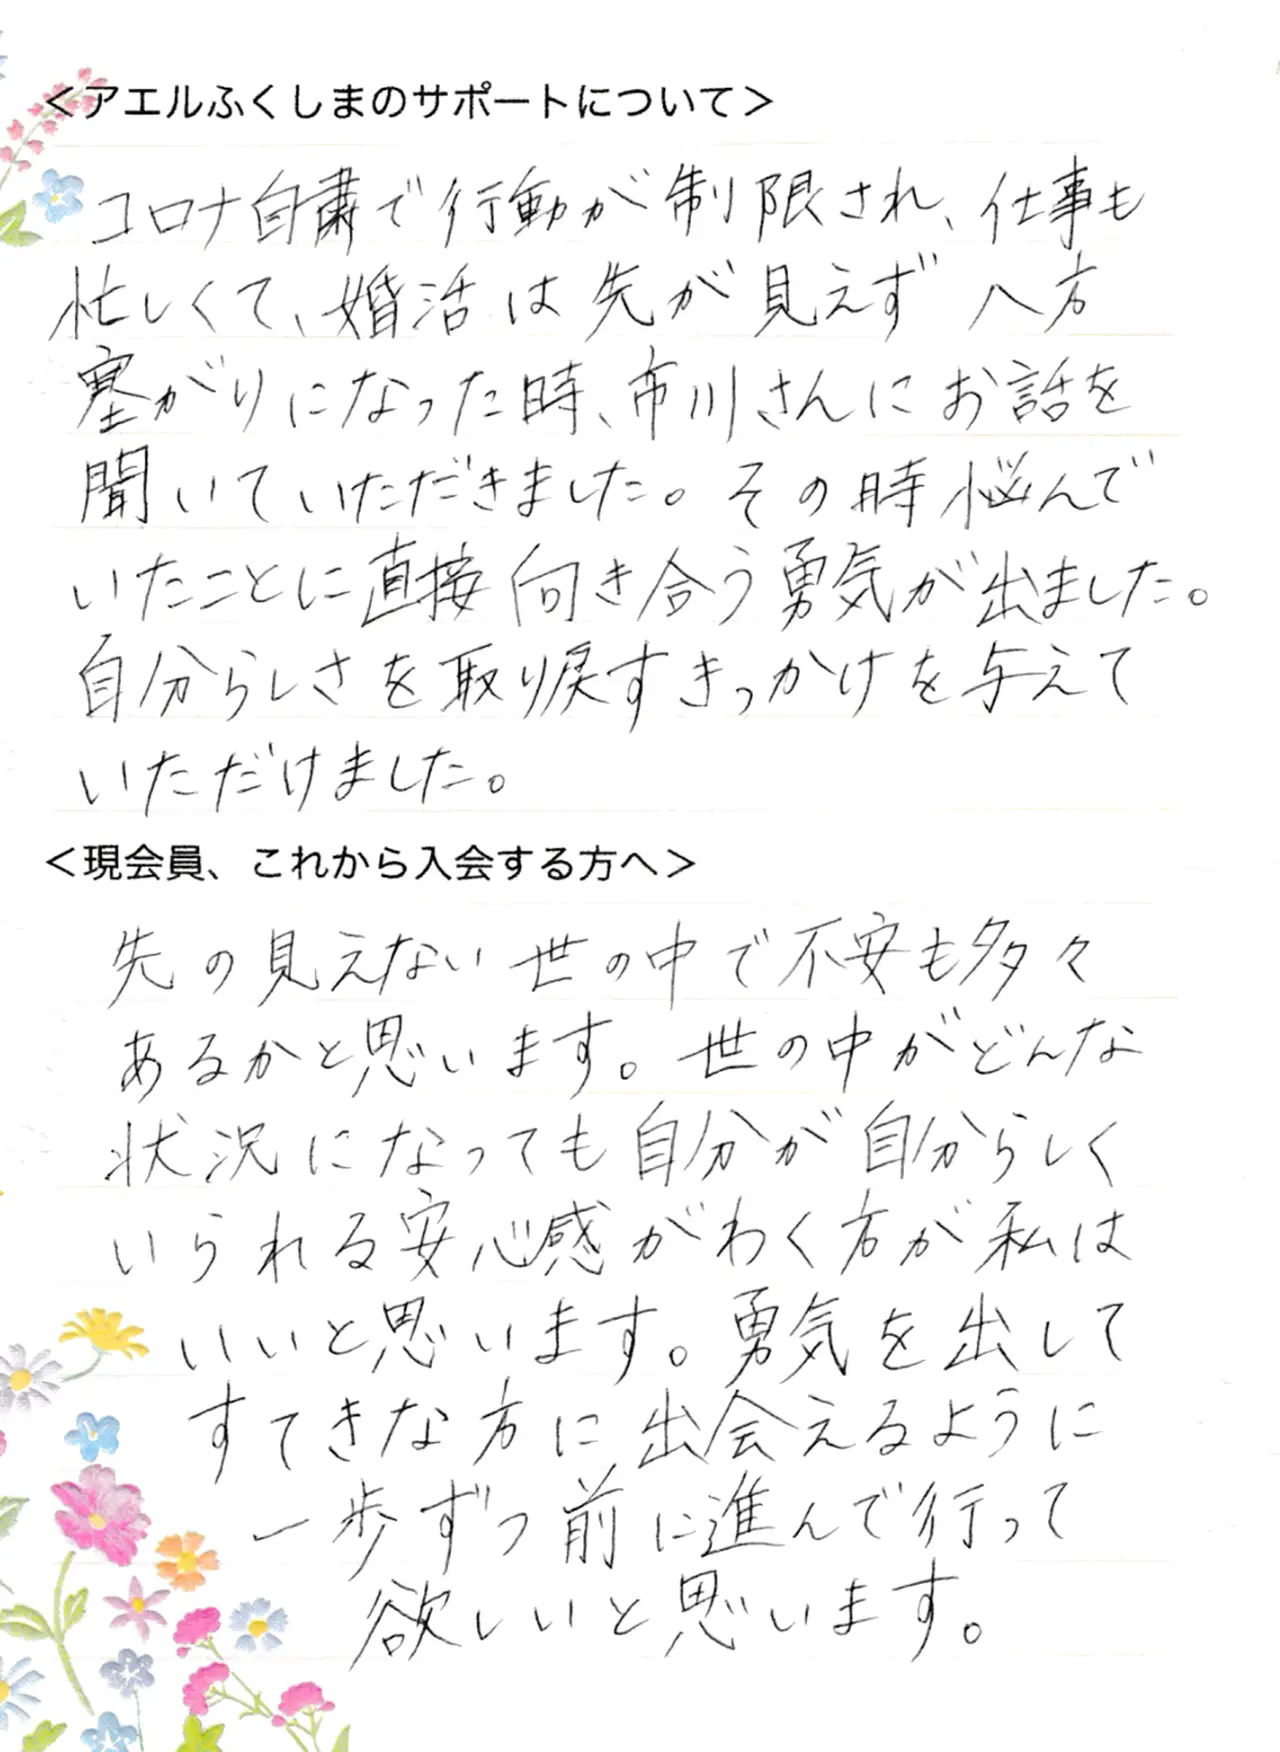 ＜アエルふくしまのサポートについて＞
コロナ自粛で行動が制限され、仕事も
忙しくて、婚活は先が見えず八方
塞がりになった時、市川さんにお話を
聞いていただきました。その時悩んで
いたことに直接向き合う勇気が出ました。
自分らしさを取り戻すきっかけを与えて
いただけました。
＜現会員、これから入会する方へ＞
先の見えない世の中で不安も多々
あるかと思います。世の中がどんな
状況になっても自分が自分らしく
いられる安心感がわく方が私は
いいと思います。勇気を出して
すてきな方に出会えるように
一歩ずつ前に進んで行って
欲しいと思います。